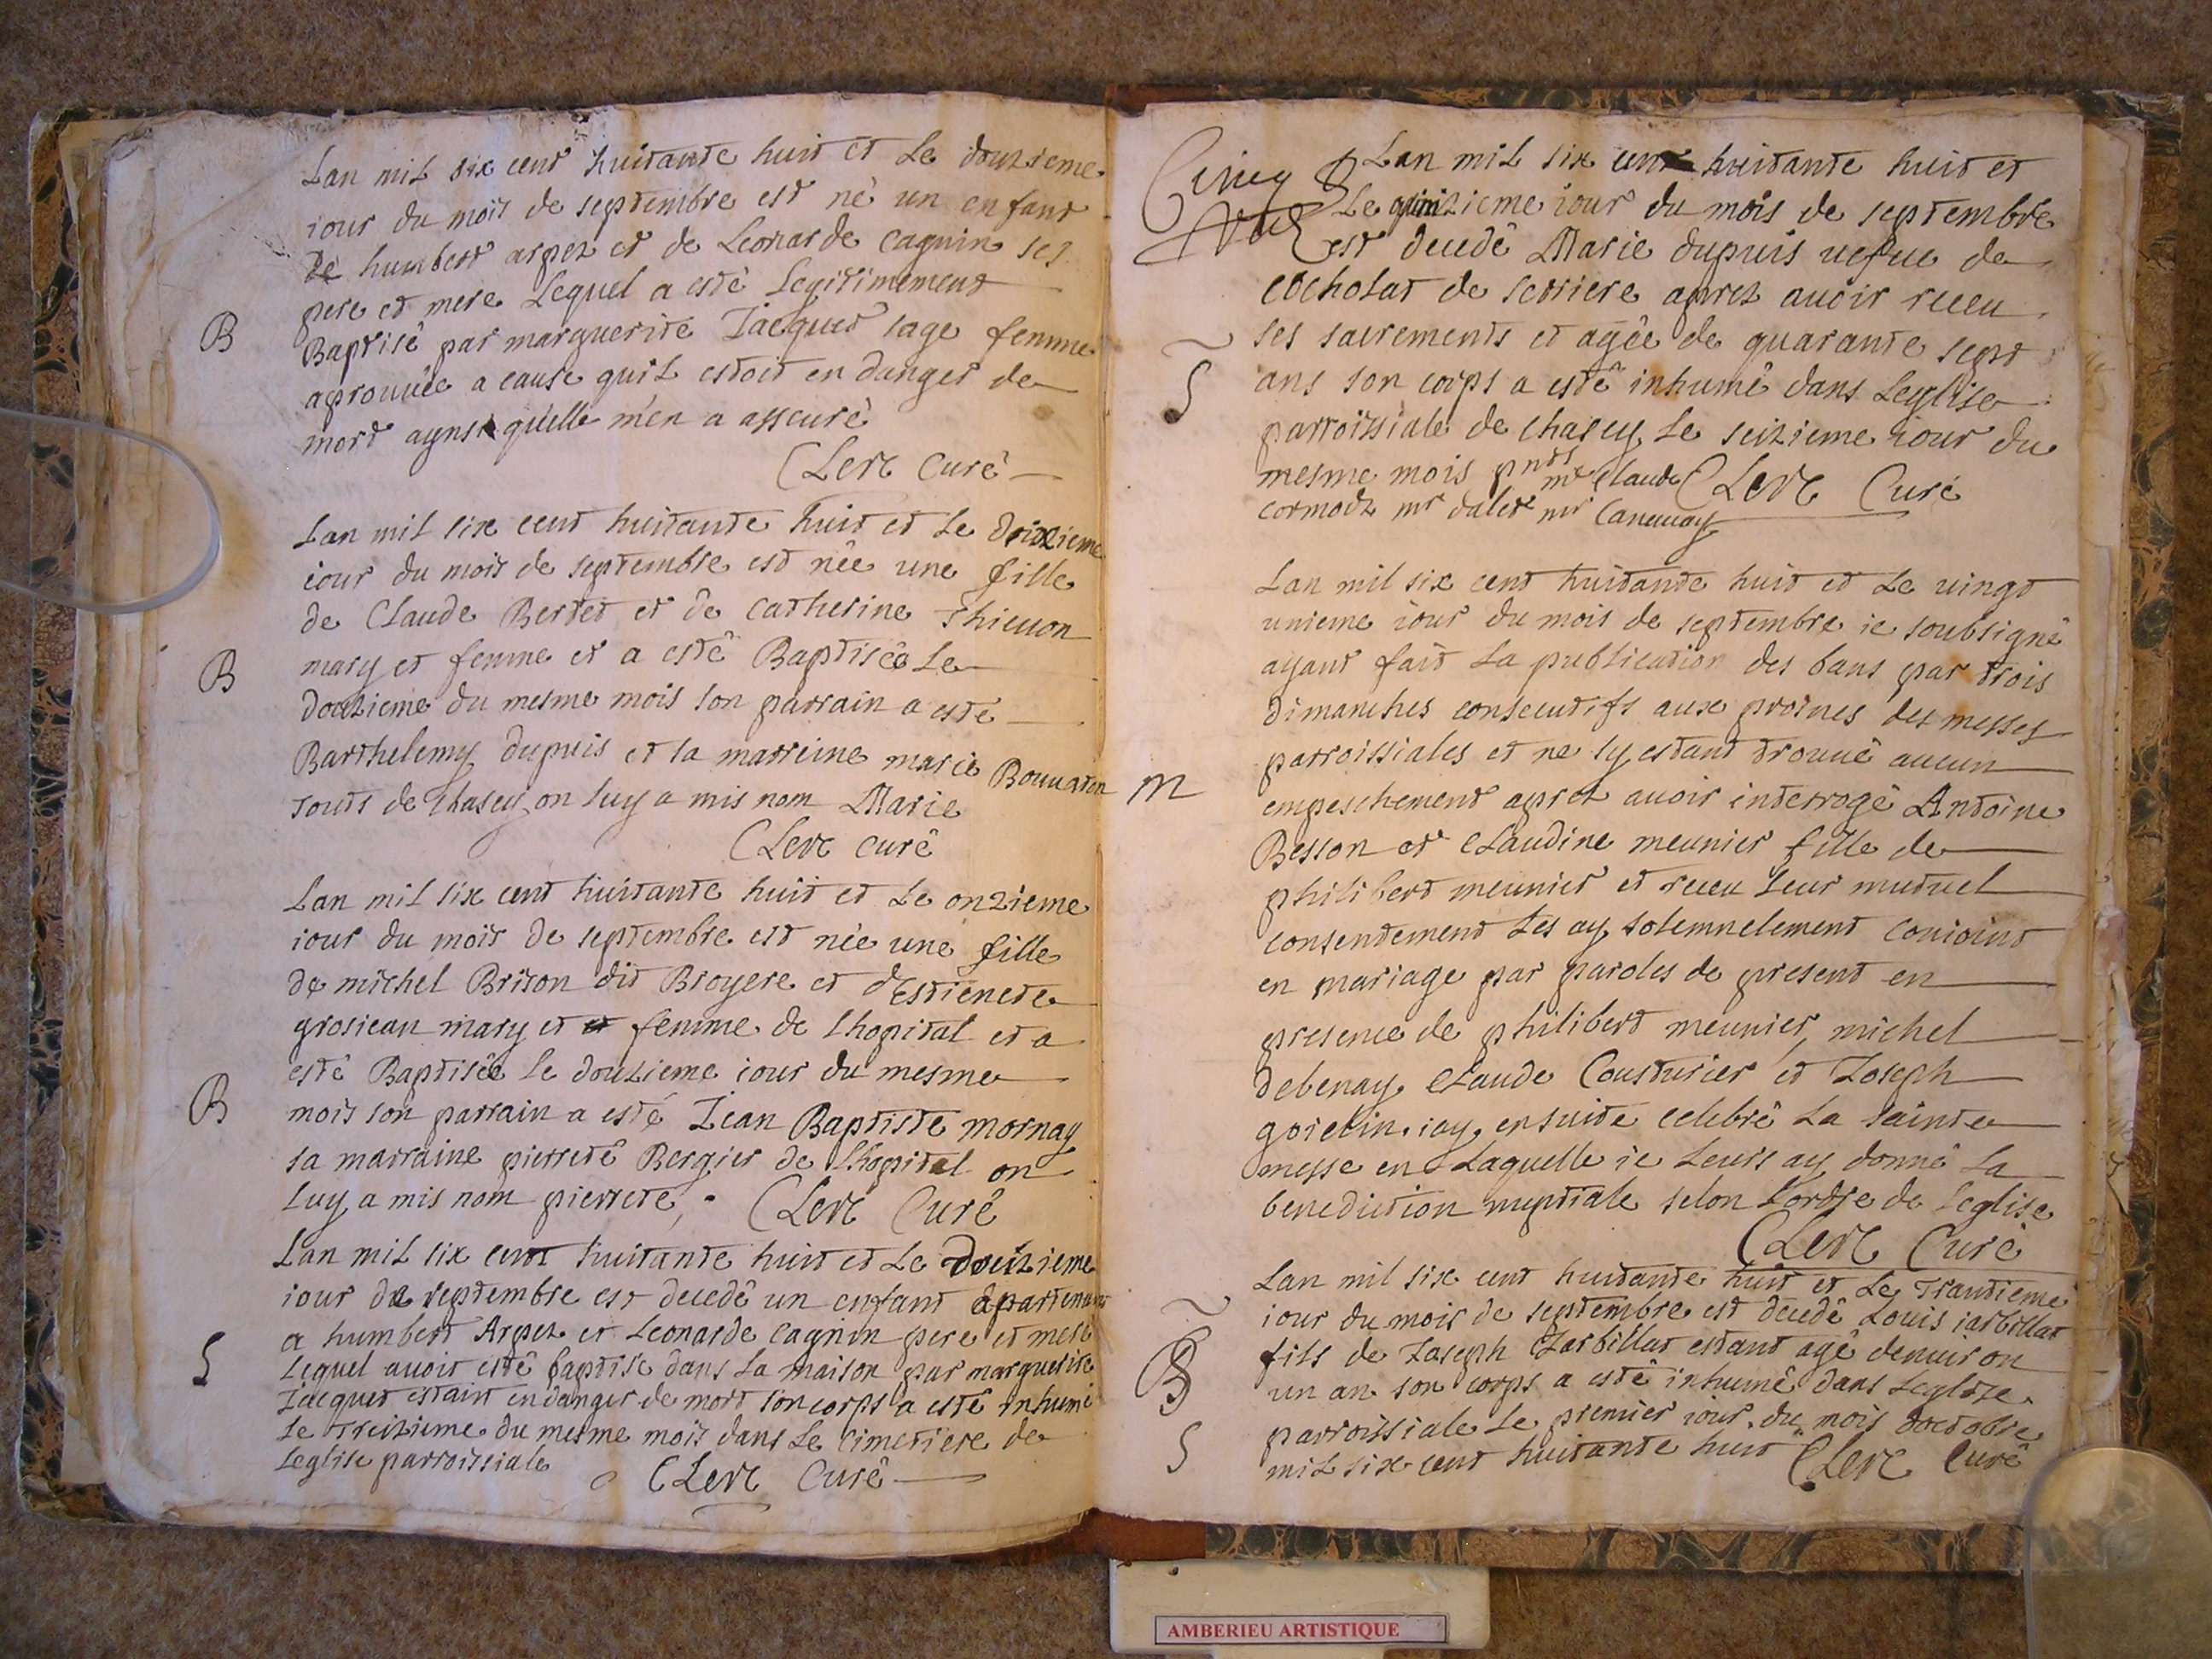 Lan mil six cent huitante huit et le douzieme
iour du mois de septembre est né un enfant
de humbert arpez et de Leonarde cagnin ses
pere et mere Lequel a esté Legitimement
B
Baptisé par marguerite Jacquet sage femme
aprouuée a cause quil estoit en danger de
mort aynsi quelle men a asseuré
Clerc curé
Lan mil six cent huitante huit et le dixieme
iour du mois de septembre est née une fille
de Claude Bertet et de catherine Thieuon
B
mary et femme et a esté Baptisée Le
douzieme du mesme mois son parrain a esté
Barthelemy dupuis et sa marreine marie Bouuaton
touts de Chasey on luy a mis nom Marie
Clerc curé
Lan mil six cent huitante huit et le onzieme
iour du mois de septembre est née une fille
de michel Brison dit Broyere et d'Estienete
grosiean mary et femme de Lhopital et a
esté Baptisée le douzieme iour du mesme
B
mois son parrain a esté Jean Baptiste mornay
sa marraine pierrete Bergier de Lhopital on
luy a mis nom pierrete, Clerc Curé
Lan mil six cent huitante huit et le douzieme
iour de septembre est decedé un enfant apartenant
a humbert Arpez et Leonarde cagnin pere et mere
S
Lequel auoit esté baptisé dans la maison par marguerite
Jacquet estant en danger de mort son corps a esté inhumé
le treizieme du mesme mois dans le cimetiere de
leglise parroissiale
Clerc Curé
Cinq
Lan mil six cent huitante huit et
Le quinzieme iour du mois de septembre
est decedé Marie dupuis uefue de
cocholat de sertiere aprez auoir receu
ses sacrements et agée de quarante sept
S
ans son corps a esté inhumé dans Leglise
parroissiale de chasey le seizieme iour du
mesme mois pnts mre Claude Clerc Curé
cormodz mr dalet mr Caneuay
Lan mil six cent huitante huit et Le uingt
unieme iour du mois de septembre ie soubsigné
ayant fait La publication des bans par trois
dimanches consecutifs aux prosnes des messes
parroissiales et ne sy estant trouué aucun
m
empeschement aprez auoir interrogé Antoine
Besson et Claudine meunier fille de
philibert meunier et receu leur mutuel
consentement Les ay solemnelement conioint
en mariage par paroles de present en
presence de philibert meunier, michel
debenay, Claude Cousturier et Joseph
goiclin, iay ensuite celebré La sainte
messe en Laquelle ie Leurs ay donné La
benediction nuptiale selon Lordre de Leglise
Clerc Curé
Lan mil six cent huitante huit et Le trantieme
iour du mois de septembre est decedé Louis iarbillat
fils de Joseph Jarbillat estant agé denuiron
B
un an son corps a esté inhumé dans Leglise
parroissiale Le premier iour du mois doctobre
S
mil six cent huitante huit Clerc Curé
AMBERIEU ARTISTIQUE